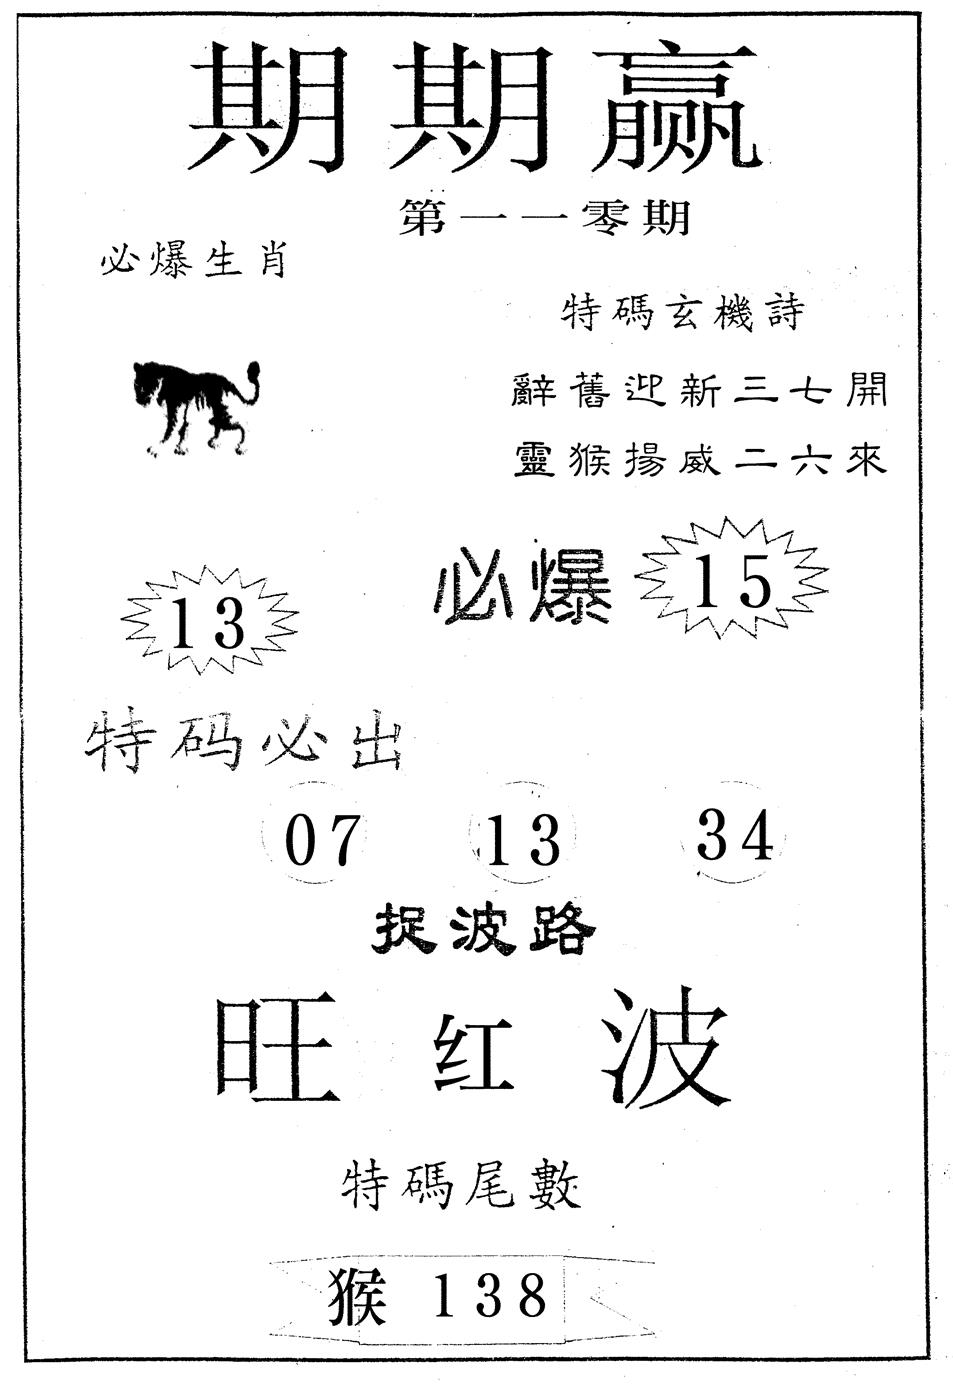 期期赢
第一一零期
必爆生肖
特碼玄機詩
辭舊迎新三七開
靈猴揚威二六來
必爆 15
13
特码必出
07 13 34
捉波路
旺红波
特碼尾數
猴 138